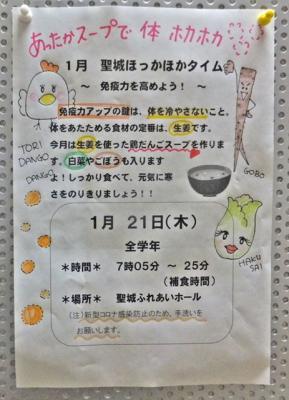 あったかスープで 体 ホカホカ
1月 聖城ほっかほかタイム
～ 免疫力を高めよう！ ～
免疫力アップの鍵は、体を冷やさないこと。
体をあたためる食材の定番は、生姜です。
今月は生姜を使った鶏だんごスープを作りま
す。白菜やごぼうも入ります
よ！しっかり食べて、元気に寒
さをのりきりましょう！！
TORI
DANGO
DANGO
GOBO
1月 21日(木)
全学年
＊時間＊ 7時05分 ～ 25分
(補食時間)
＊場所＊ 聖城ふれあいホール
(注)新型コロナ感染防止のため、手洗いを
お願いします。
HAKU
SAI